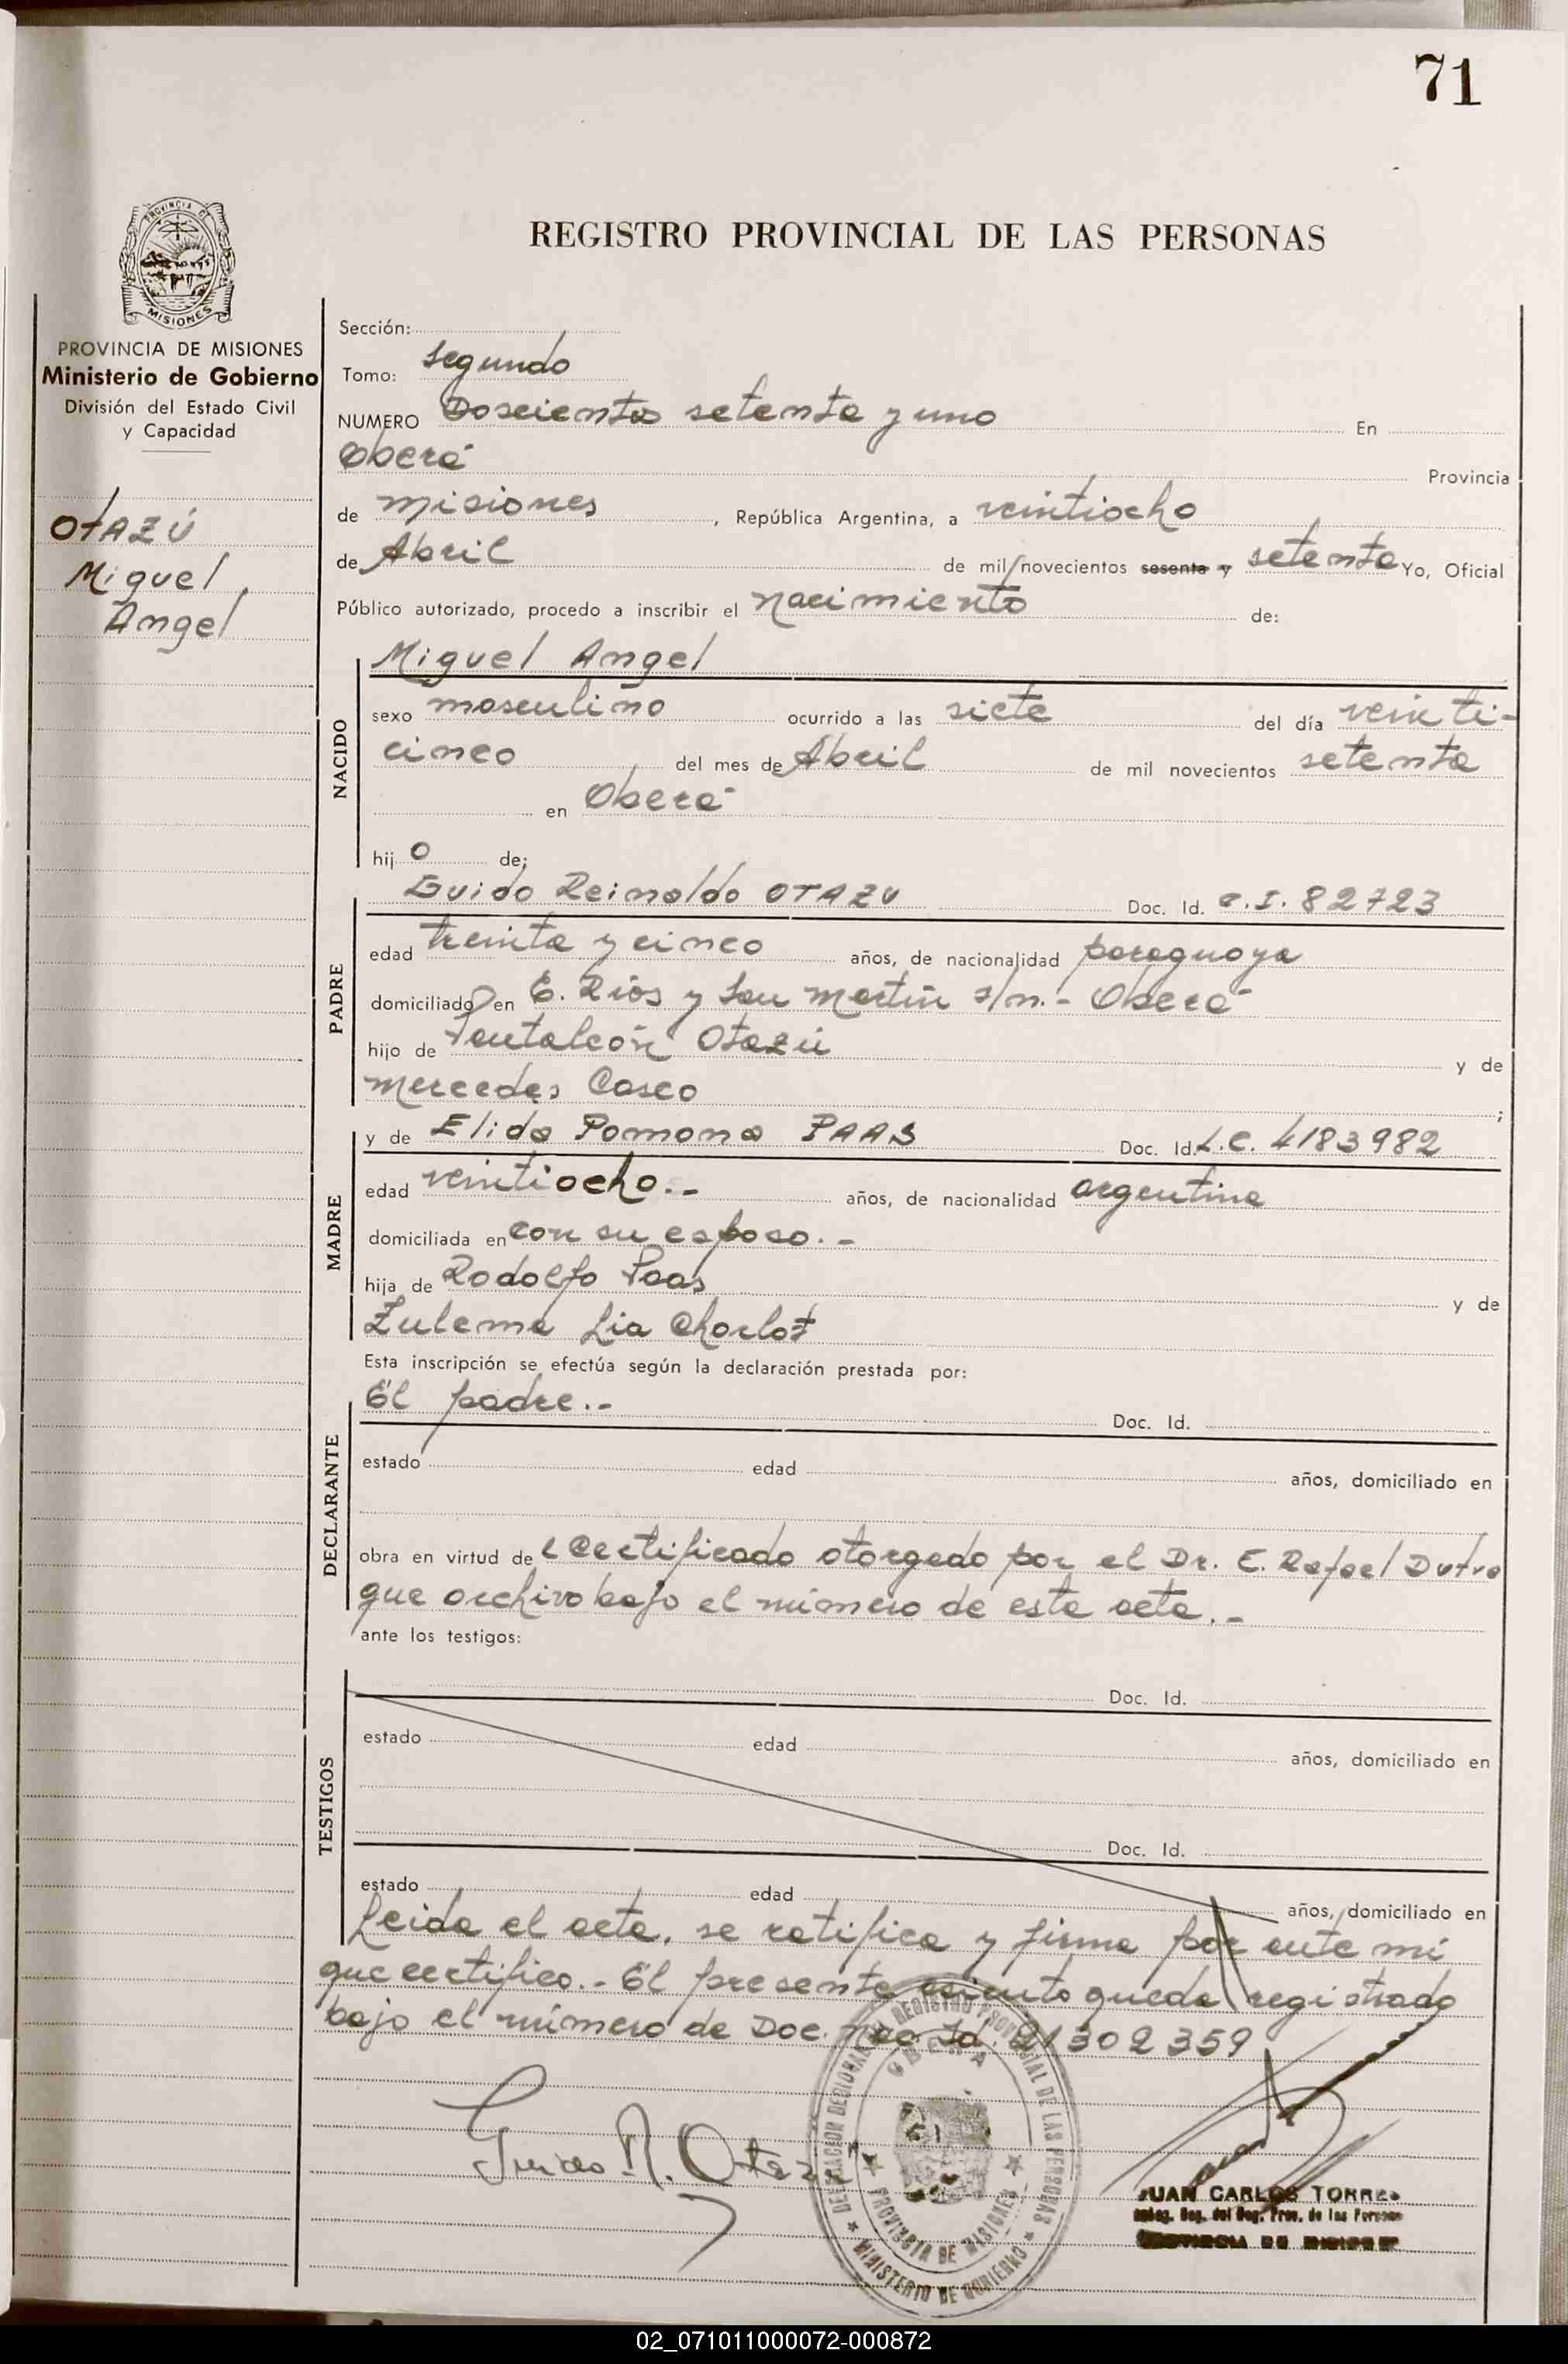 71
PROVINCIA DE
MISIONES
REGISTRO PROVINCIAL DE LAS PERSONAS
PROVINCIA DE MISIONES
Ministerio de Gobierno
División del Estado Civil
y Capacidad
OTAZÚ
Miguel
Angel
Sección:
Tomo: Segundo
NUMERO Doscientos setenta y uno En
Oberá Provincia
de Misiones, República Argentina, a veintiocho
de Abril de mil novecientos sesenta y setenta Yo, Oficial
Público autorizado, procedo a inscribir el nacimiento de:
NACIDO
Miguel Angel
sexo masculino ocurrido a las siete del día veinti-
cinco del mes de Abril de mil novecientos setenta
en Oberá
hijo de;
PADRE
Guido Reinaldo OTAZU Doc. Id. C.I. 82723
edad treinta y cinco años, de nacionalidad paraguaya
domiciliado en E. Ríos y San Martín s/n.- Oberá
hijo de Pantaleón Otazú y de
Mercedes Casco ;
MADRE
y de Elida Pomona PAAS Doc. Id. L.C. 4183982
edad veintiocho.- años, de nacionalidad argentina
domiciliada en con su esposo.-
hija de Rodolfo Paas y de
Zulema Lia Charlot
Esta inscripción se efectúa según la declaración prestada por:
DECLARANTE
El padre.- Doc. Id.
estado edad años, domiciliado en
obra en virtud de Certificado otorgado por el Dr. E. Rafael Dutra
que archivo bajo el número de esta acta.-
ante los testigos:
TESTIGOS
Doc. Id.
estado edad años, domiciliado en
Doc. Id.
estado edad años, domiciliado en
Leida el acta, se ratifica y firma por ante mí
que certifico.- El presente asiento queda registrado
bajo el número de Doc. Nac. Id. 21302359
Guido R. Otazú
REGISTRO PROVINCIAL DE LAS PERSONAS
OBERA
PROVINCIA DE MISIONES
MINISTERIO DE GOBIERNO
JUAN CARLOS TORRES
Deleg. Reg. del Reg. Prov. de las Personas
PROVINCIA DE MISIONES
02_071011000072-000872